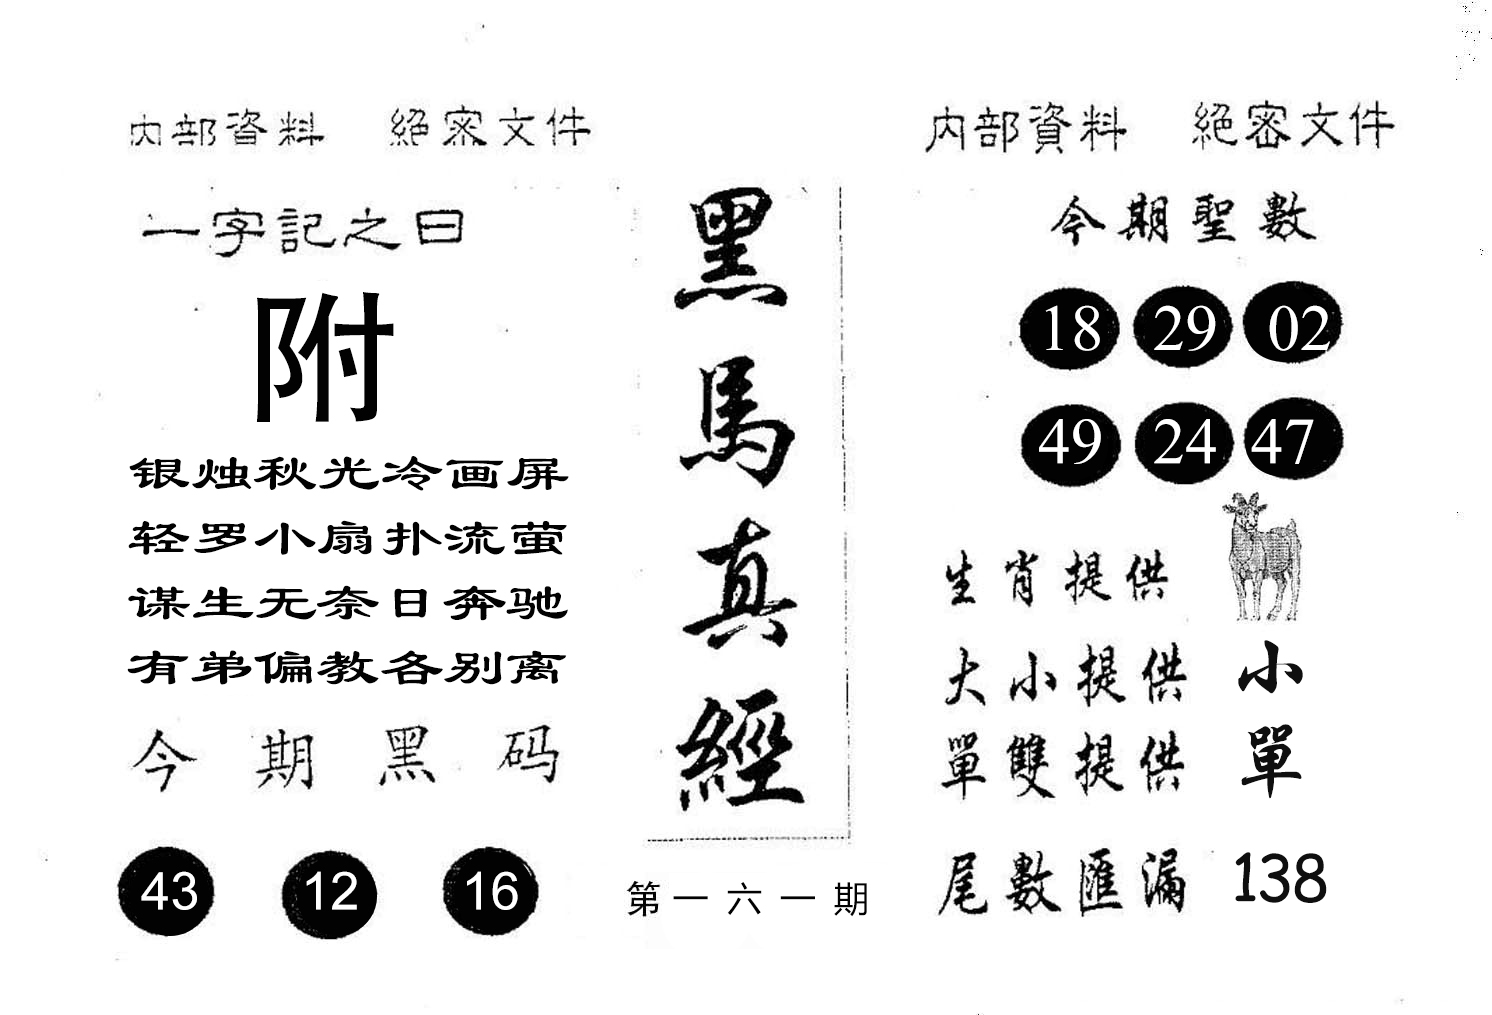 內部資料 絕密文件
一字記之曰
附
银烛秋光冷画屏
轻罗小扇扑流萤
谋生无奈日奔驰
有弟偏教各别离
今期黑码
43 12 16
黑馬真經
第一六一期
內部資料 絕密文件
今期聖數
18 29 02
49 24 47
生肖提供
大小提供 小
單雙提供 單
尾數匯漏 138